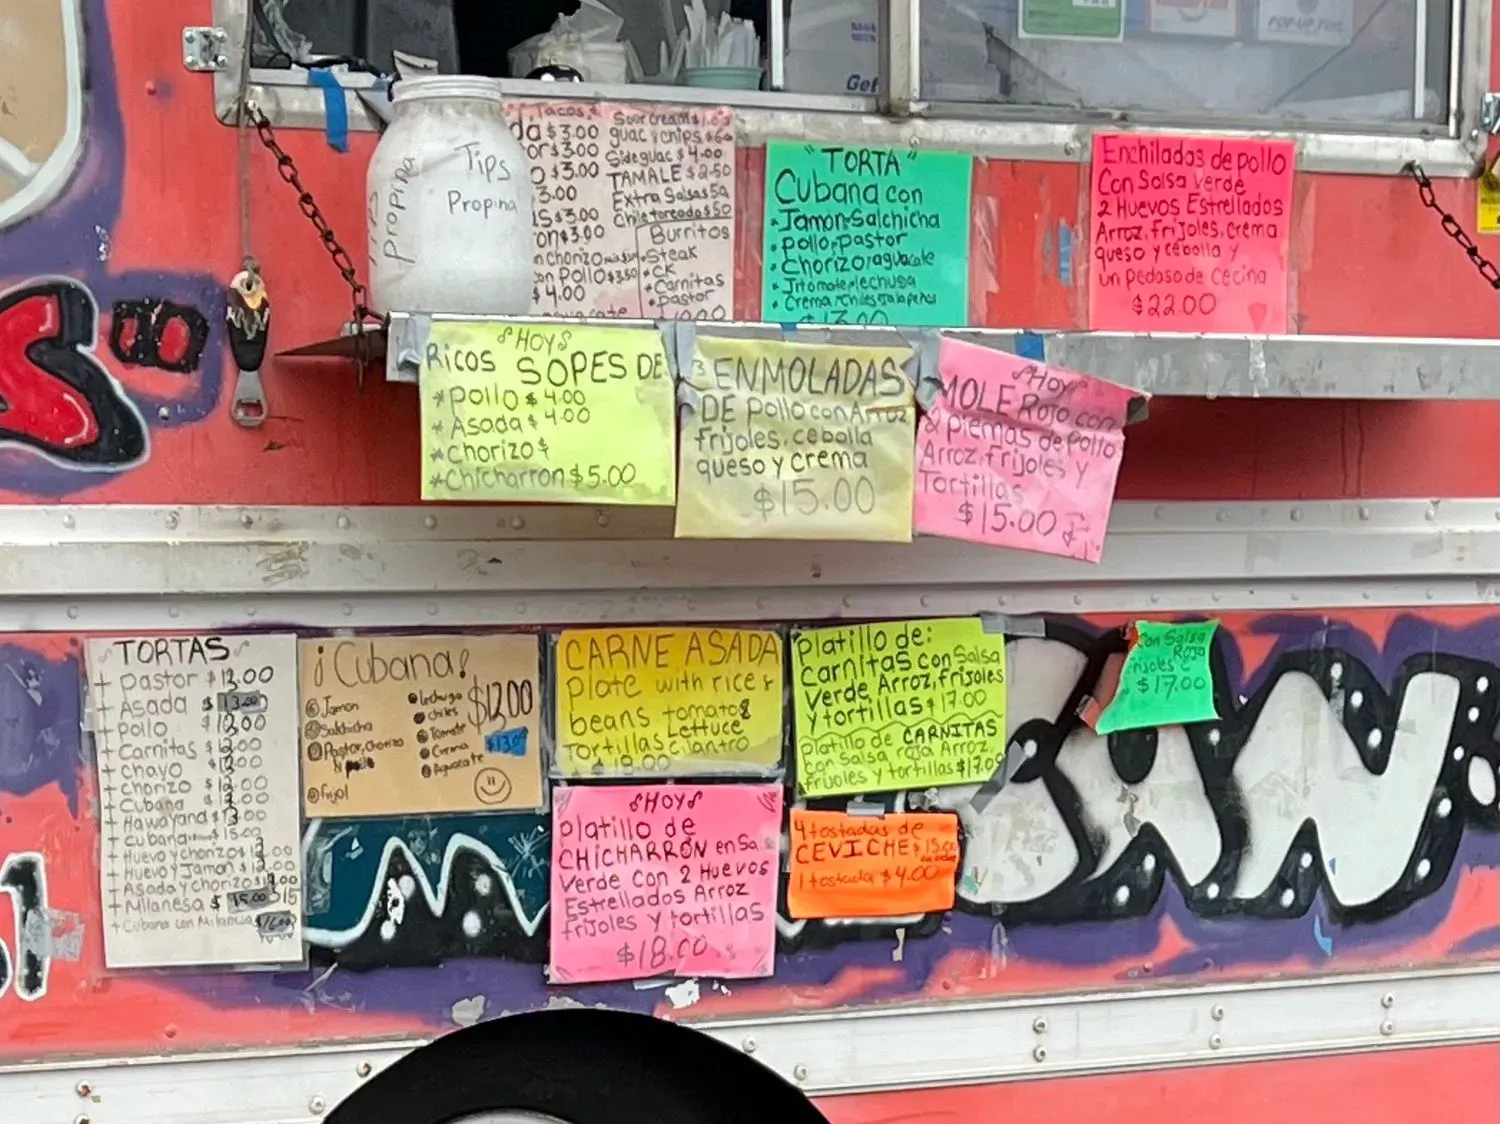 Get
POP-UP
Tips
Propina
Propina
Tacos
$3.00
$3.00
$3.00
3.00
$3.00
$3.00
Chorizo
con Pollo $3.50
$4.00
Sour Cream
guac y chips
Side guac $4.00
TAMALE $2.50
Extra Salsas
Chile toreado
Burritos
•Steak
•CK
•Carnitas
•Pastor
"TORTA"
Cubana con
•Jamon•Salchicha
•pollo,pastor
•Chorizo,aguacate
•Jitomate,lechuga
•Crema,chiles
$13.00
Enchiladas de pollo
Con Salsa Verde
2 Huevos Estrellados
Arroz, frijoles, crema
queso y cebolla y
un pedaso de cecina
$22.00
HOY
Ricos SOPES DE
*pollo $4.00
*Asada $4.00
*Chorizo $
*Chicharron $5.00
3 ENMOLADAS
DE pollo con Arroz
frijoles, cebolla
queso y crema
$15.00
HOY
MOLE Rojo con
2 piernas de pollo
Arroz, frijoles y
Tortillas
$15.00
TORTAS
+ Pastor
+ Asada
+ pollo
+ Carnitas
+ chavo
+ Chorizo
+ Cubana
+ Hawayana
+ Cubana $15.00
+ Huevo y chorizo
+ Huevo y Jamon
+ Asada y chorizo
+ Milanesa $ 15.00 $15
+ Cubana con Milanesa
¡Cubana!
Jamon
Salchicha
Pastor, chorizo
frijol
lechuga
chiles
Tomate
Crema
Aguacate
$12.00
$13.00
CARNE ASADA
plate with rice &
beans tomatos
Lettuce
Tortillas cilantro
platillo de:
Carnitas con Salsa
Verde Arroz, frijoles
y tortillas $17.00
platillo de CARNITAS
con Salsa roja Arroz,
frijoles y tortillas $17.00
Con Salsa
Roja
$17.00
HOY
platillo de
CHICHARRÓN en Salsa
Verde Con 2 Huevos
Estrellados Arroz
frijoles y tortillas
$18.00
4 tostadas de
CEVICHE $15.00
1 tostada $4.00